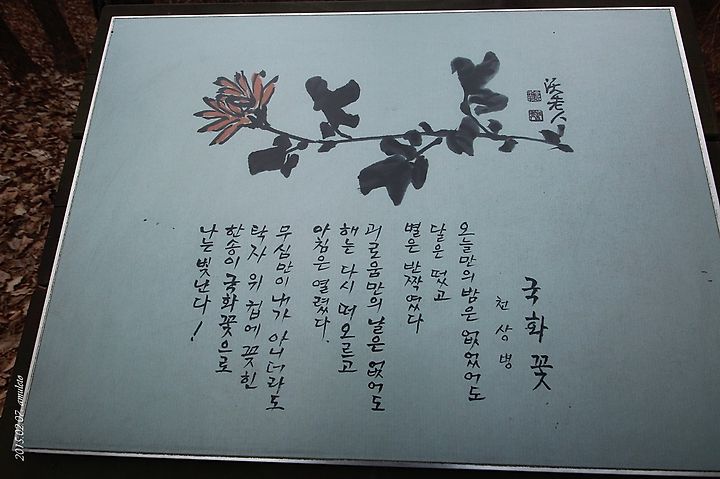 국화꽃
천상병
오늘만의 밤은 없었어도
달은 떴고
별은 반짝였다
괴로움만의 날은 없어도
해는 다시 떠오르고
아침은 열렸다.
무심만이 내가 아니더라도
탁자 위 컵에 꽂힌
한송이 국화꽃으로
나는 빛난다!
老人
2015.02.07. amuleto